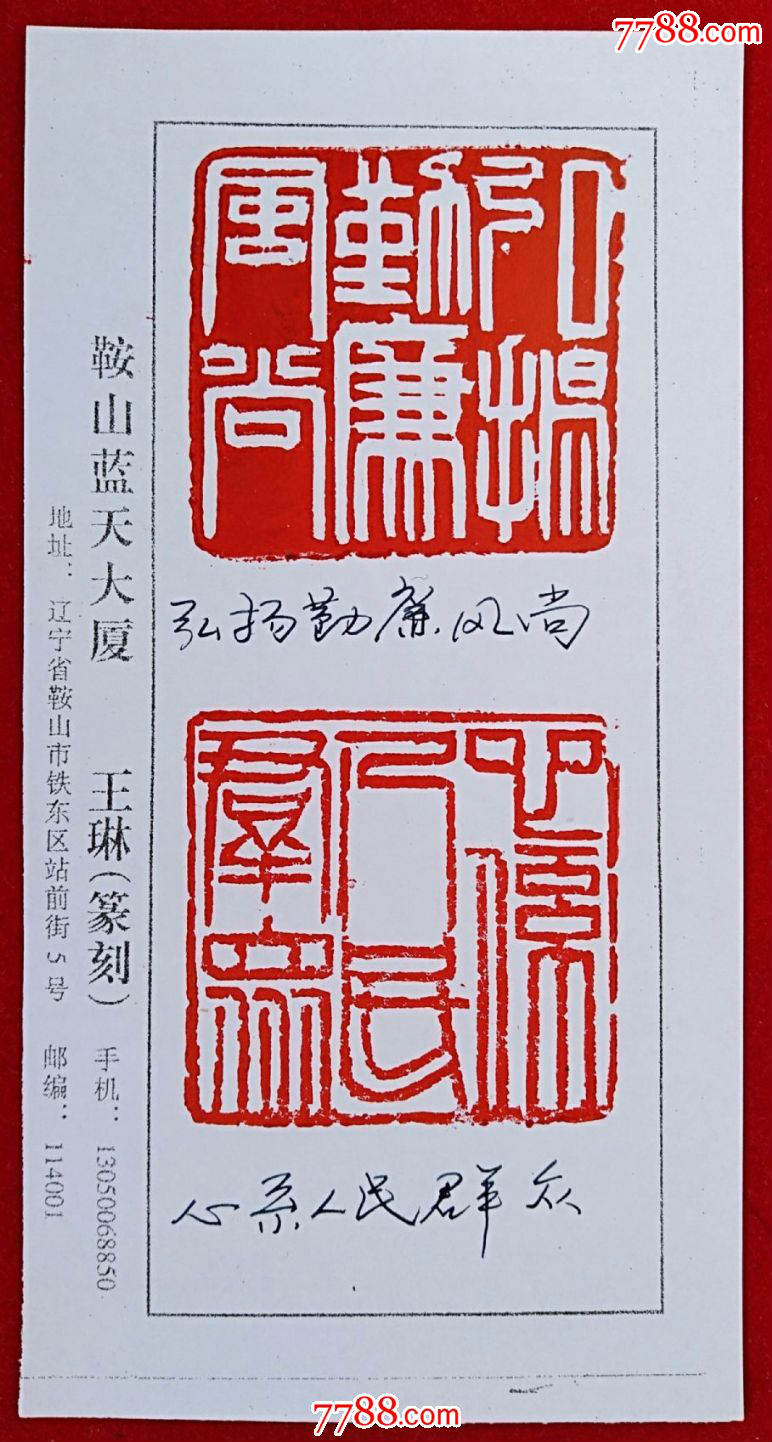 7788.com
弘揚
勤廉
風尚
弘扬勤廉风尚
心係
人民
羣眾
心系人民群众
鞍山蓝天大厦 王琳(篆刻) 手机：13050068850
地址：辽宁省鞍山市铁东区站前街5号 邮编：114001
7788.com